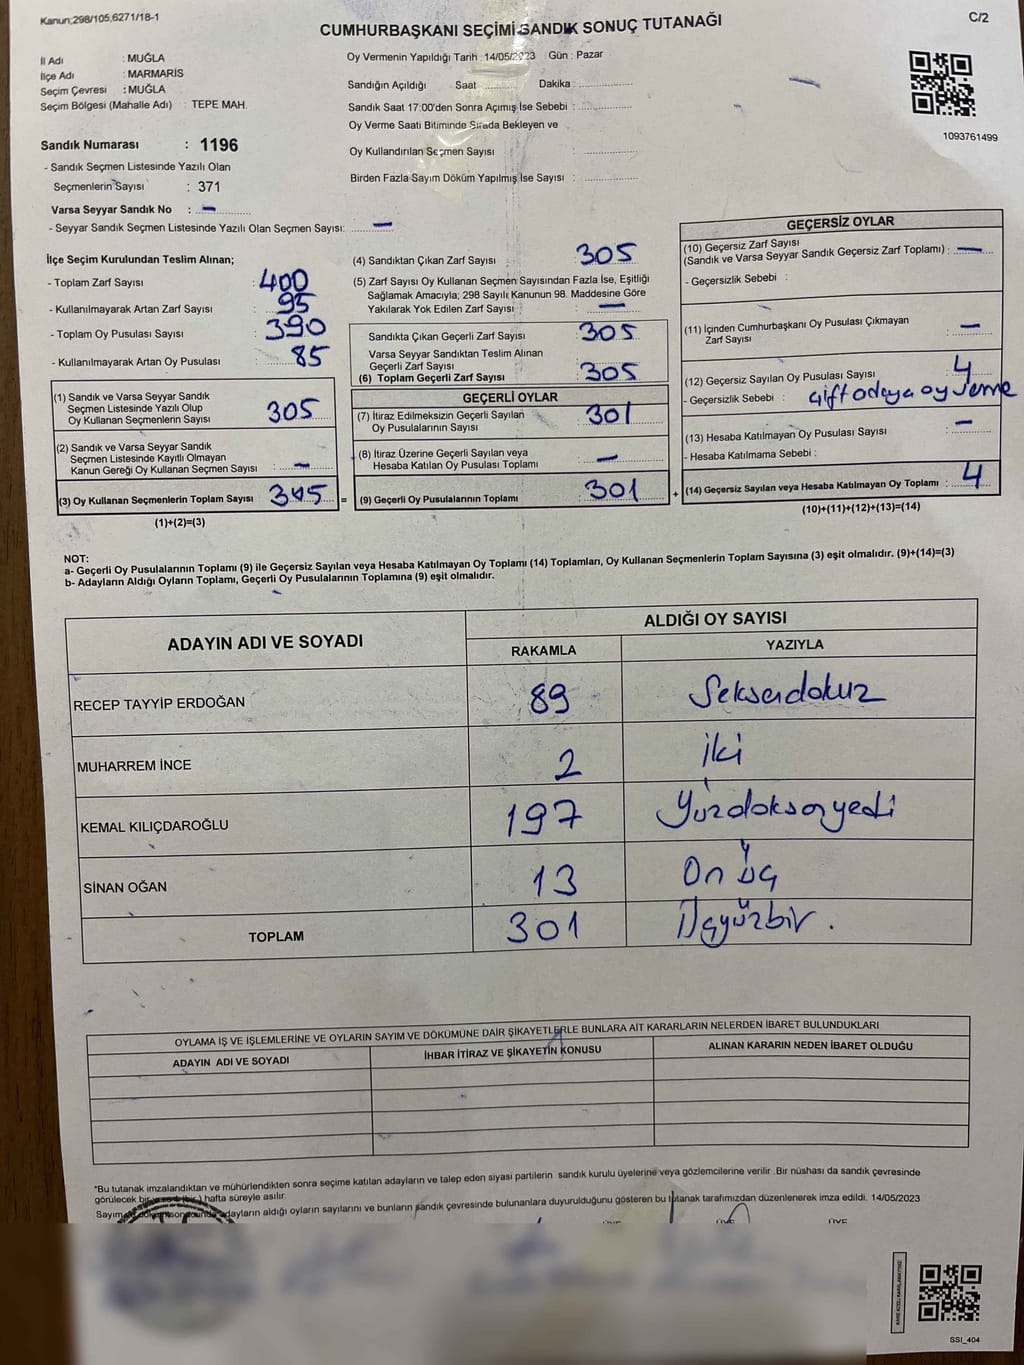 Kanun;298/105,6271/18-1
CUMHURBAŞKANI SEÇİMİ SANDIK SONUÇ TUTANAĞI
C/2
İl Adı : MUĞLA
İlçe Adı : MARMARİS
Seçim Çevresi : MUĞLA
Seçim Bölgesi (Mahalle Adı) : TEPE MAH.
Oy Vermenin Yapıldığı Tarih : 14/05/2023 Gün : Pazar
Sandığın Açıldığı Saat : Dakika :
Sandık Saat 17:00'den Sonra Açımış İse Sebebi :
Oy Verme Saati Bitiminde Sırada Bekleyen ve
Oy Kullandırılan Seçmen Sayısı
Birden Fazla Sayım Döküm Yapılmış İse Sayısı :
1093761499
Sandık Numarası : 1196
- Sandık Seçmen Listesinde Yazılı Olan
Seçmenlerin Sayısı : 371
Varsa Seyyar Sandık No : -
- Seyyar Sandık Seçmen Listesinde Yazılı Olan Seçmen Sayısı: -
İlçe Seçim Kurulundan Teslim Alınan;
- Toplam Zarf Sayısı : 400
- Kullanılmayarak Artan Zarf Sayısı : 95
- Toplam Oy Pusulası Sayısı : 390
- Kullanılmayarak Artan Oy Pusulası : 85
(1) Sandık ve Varsa Seyyar Sandık
Seçmen Listesinde Yazılı Olup
Oy Kullanan Seçmenlerin Sayısı : 305
(2) Sandık ve Varsa Seyyar Sandık
Seçmen Listesinde Kayıtlı Olmayan
Kanun Gereği Oy Kullanan Seçmen Sayısı : -
(3) Oy Kullanan Seçmenlerin Toplam Sayısı : 305 =
(1)+(2)=(3)
(4) Sandıktan Çıkan Zarf Sayısı : 305
(5) Zarf Sayısı Oy Kullanan Seçmen Sayısından Fazla İse, Eşitliği
Sağlamak Amacıyla; 298 Sayılı Kanunun 98. Maddesine Göre
Yakılarak Yok Edilen Zarf Sayısı : -
Sandıkta Çıkan Geçerli Zarf Sayısı : 305
Varsa Seyyar Sandıktan Teslim Alınan
Geçerli Zarf Sayısı :
(6) Toplam Geçerli Zarf Sayısı : 305
GEÇERLİ OYLAR
(7) İtiraz Edilmeksizin Geçerli Sayılan
Oy Pusulalarının Sayısı : 301
(8) İtiraz Üzerine Geçerli Sayılan veya
Hesaba Katılan Oy Pusulası Toplamı : -
(9) Geçerli Oy Pusulalarının Toplamı : 301 +
GEÇERSİZ OYLAR
(10) Geçersiz Zarf Sayısı
(Sandık ve Varsa Seyyar Sandık Geçersiz Zarf Toplamı) : -
- Geçersizlik Sebebi :
(11) İçinden Cumhurbaşkanı Oy Pusulası Çıkmayan
Zarf Sayısı : -
(12) Geçersiz Sayılan Oy Pusulası Sayısı : 4
- Geçersizlik Sebebi : Çift odaya oy verme
(13) Hesaba Katılmayan Oy Pusulası Sayısı : -
- Hesaba Katılmama Sebebi :
(14) Geçersiz Sayılan veya Hesaba Katılmayan Oy Toplamı : 4
(10)+(11)+(12)+(13)=(14)
NOT:
a- Geçerli Oy Pusulalarının Toplamı (9) ile Geçersiz Sayılan veya Hesaba Katılmayan Oy Toplamı (14) Toplamları, Oy Kullanan Seçmenlerin Toplam Sayısına (3) eşit olmalıdır. (9)+(14)=(3)
b- Adayların Aldığı Oyların Toplamı, Geçerli Oy Pusulalarının Toplamına (9) eşit olmalıdır.
ADAYIN ADI VE SOYADI
ALDIĞI OY SAYISI
RAKAMLA YAZIYLA
RECEP TAYYİP ERDOĞAN 89 Seksendokuz
MUHARREM İNCE 2 İki
KEMAL KILIÇDAROĞLU 197 Yüzdoksanyedi
SİNAN OĞAN 13 On üç
TOPLAM 301 Üçyüzbir.
OYLAMA İŞ VE İŞLEMLERİNE VE OYLARIN SAYIM VE DÖKÜMÜNE DAİR ŞİKAYETLERLE BUNLARA AİT KARARLARIN NELERDEN İBARET BULUNDUKLARI
ADAYIN ADI VE SOYADI
İHBAR İTİRAZ VE ŞİKAYETİN KONUSU
ALINAN KARARIN NEDEN İBARET OLDUĞU
*Bu tutanak imzalandıktan ve mühürlendikten sonra seçime katılan adayların ve talep eden siyasi partilerin sandık kurulu üyelerine veya gözlemcilerine verilir .Bir nüshası da sandık çevresinde
görülecek bir yere 1 (bir ) hafta süreyle asılır.
Sayım ve döküm sonucunda adayların aldığı oyların sayılarını ve bunların sandık çevresinde bulunanlara duyurulduğunu gösteren bu tutanak tarafımızdan düzenlenerek imza edildi. 14/05/2023
SSI_404